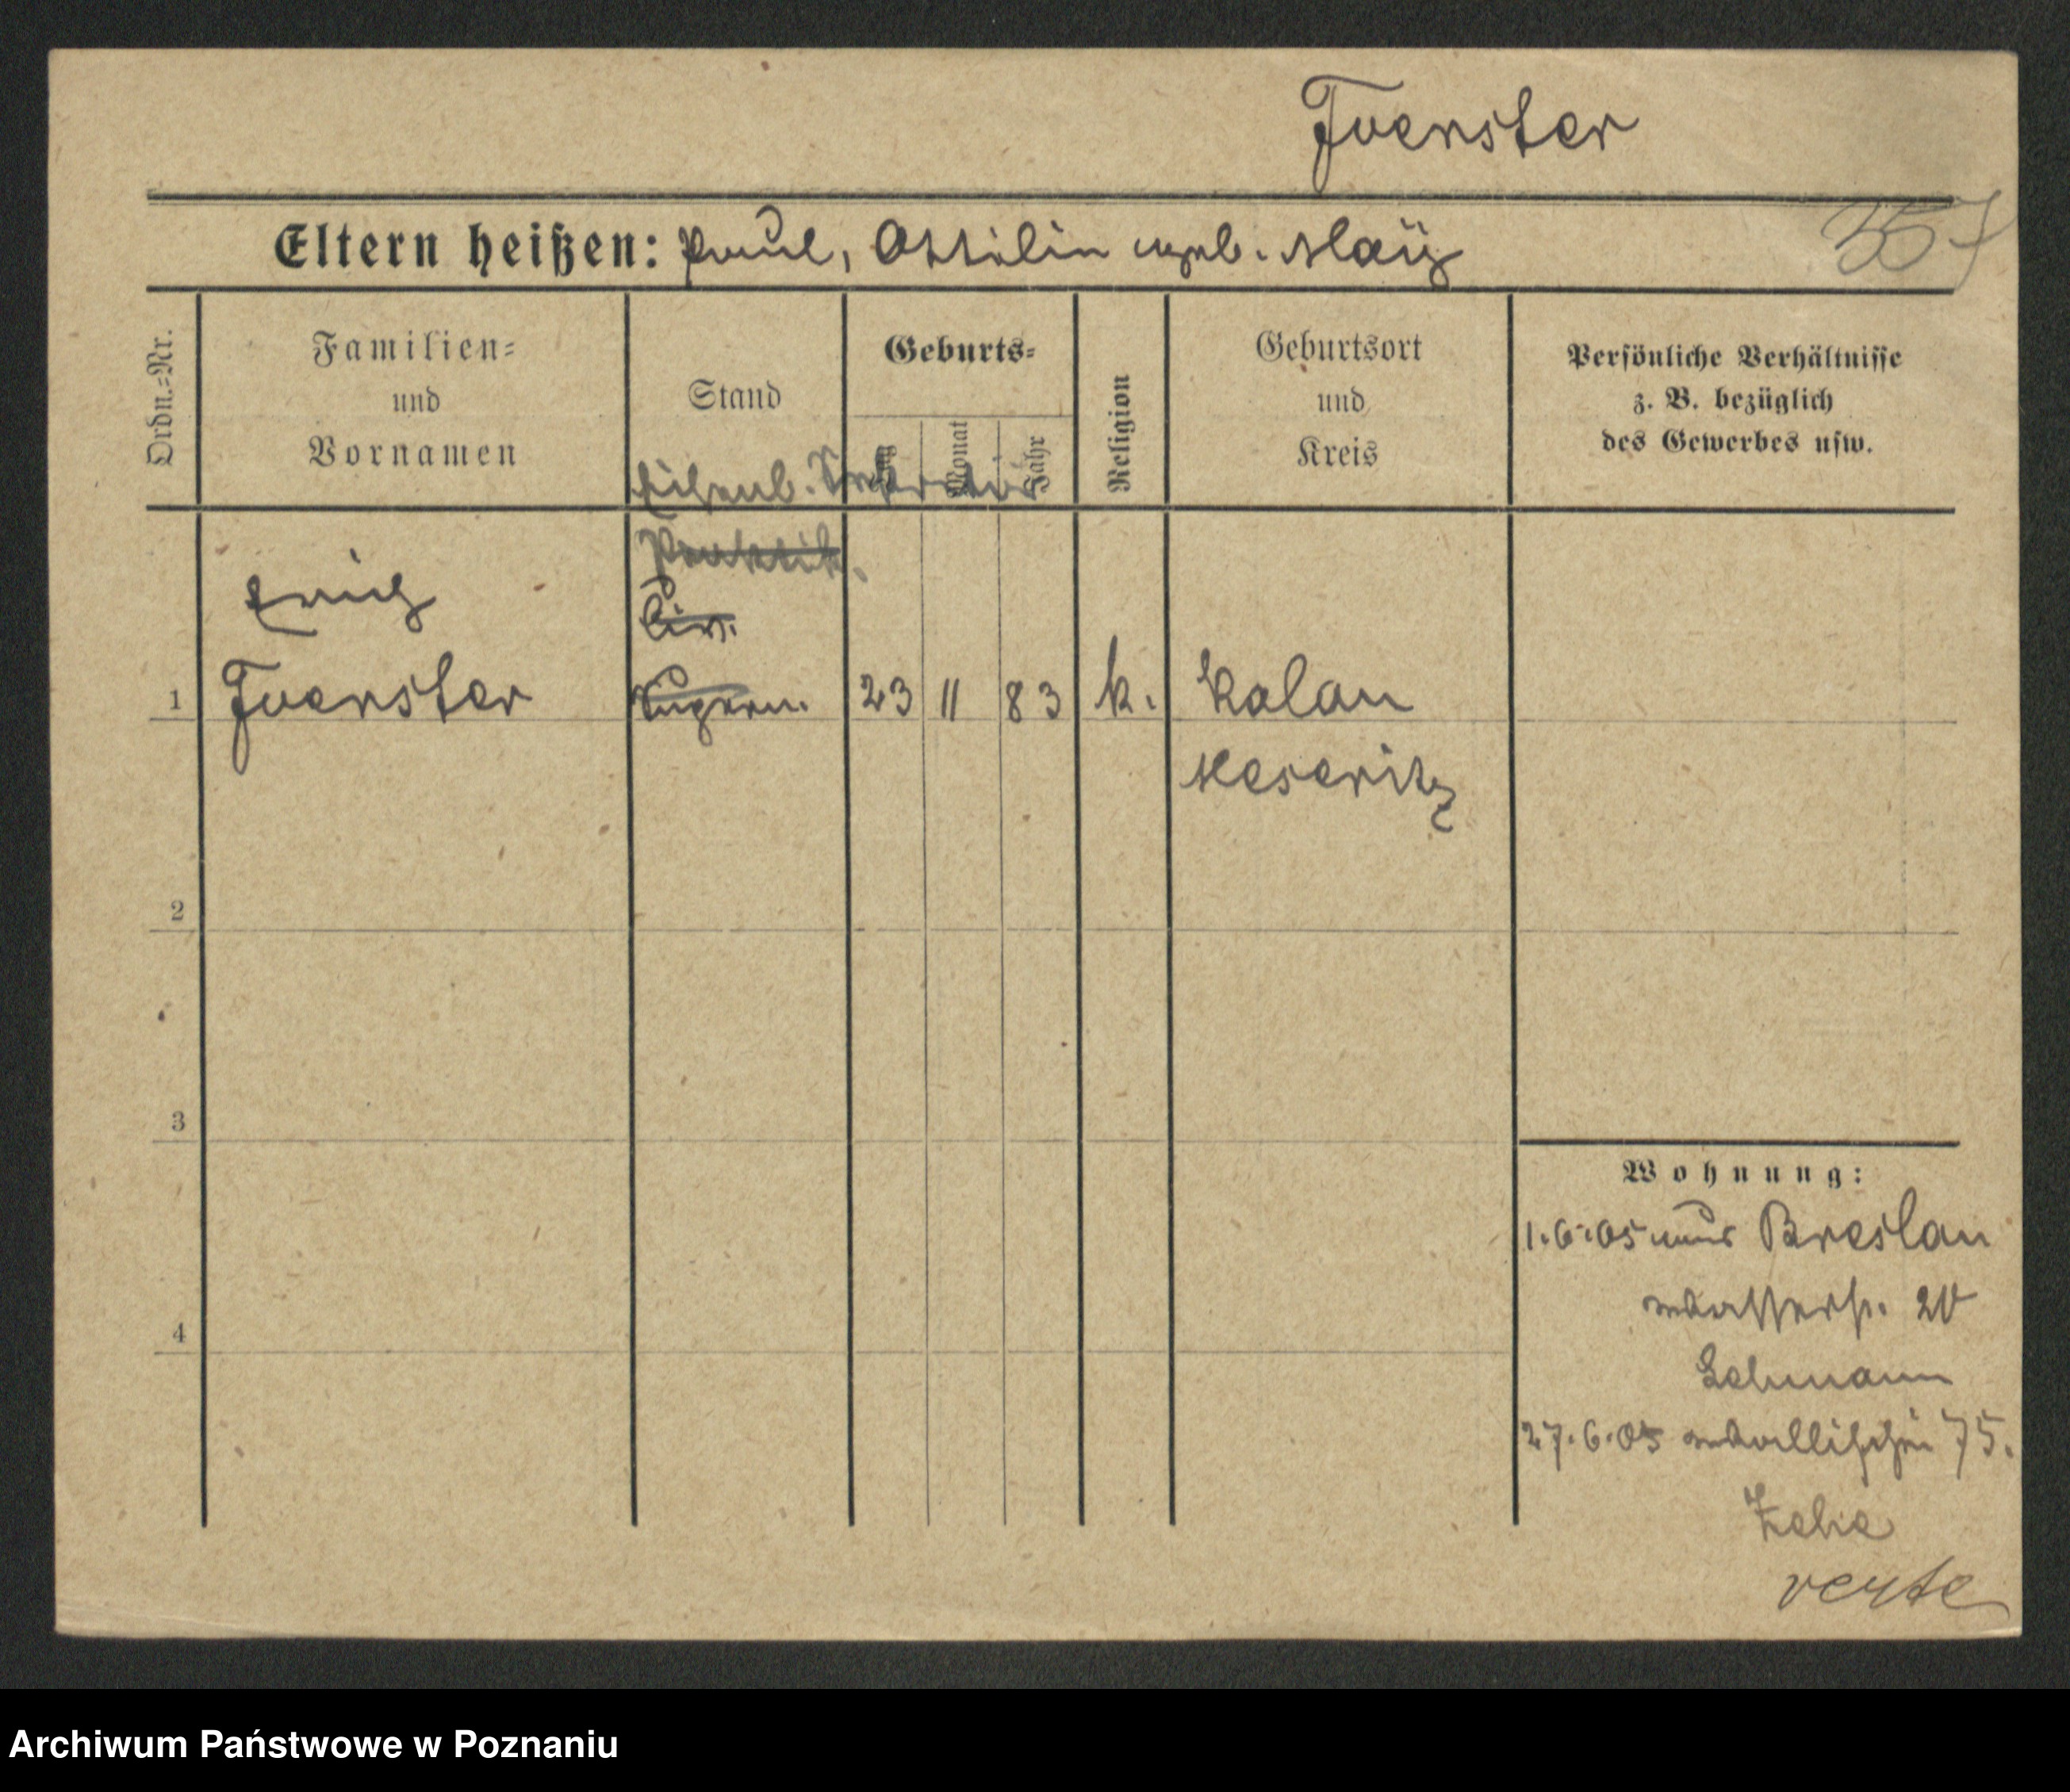 Foerster
Eltern heißen: Paul, Ottilie geb. May
357
Ordn.-Nr.
Familien-
und
Vornamen
Stand
Geburts-
Tag
Monat
Jahr
Religion
Geburtsort
und
Kreis
Persönliche Verhältnisse
z. B. bezüglich
des Gewerbes usw.
Eisenb.
Praktik.
Erich
Civ.
1 Foerster Supern. 23 11 83 k. Kalau
Meseritz
2
3
4
Wohnung:
1.6.05 aus Breslau
Wasserstr. 20
Lehmann
27.6.05 Wallischei 75.
verte
Archiwum Państwowe w Poznaniu